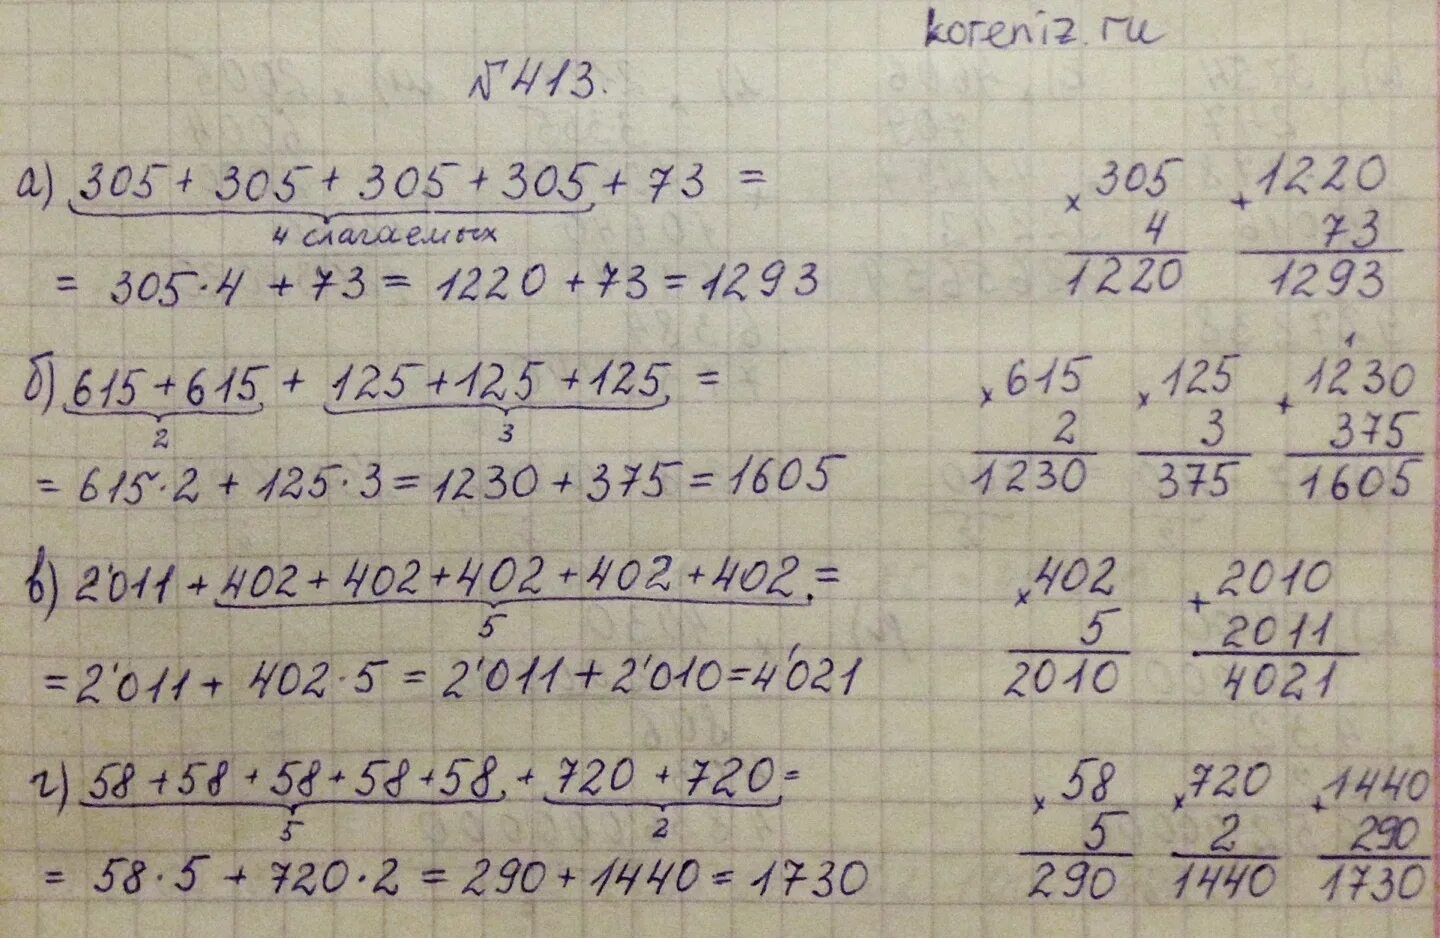 koreniz.ru
№413.
а) 305 + 305 + 305 + 305 + 73 =
4 слагаемых
= 305·4 + 73 = 1220 + 73 = 1293
× 305
4
1220
+ 1220
73
1293
б) 615 + 615 + 125 + 125 + 125 =
2 3
= 615·2 + 125·3 = 1230 + 375 = 1605
× 615
2
1230
× 125
3
375
1
+ 1230
375
1605
в) 2'011 + 402 + 402 + 402 + 402 + 402 =
5
= 2'011 + 402·5 = 2'011 + 2'010 = 4'021
× 402
5
2010
+ 2010
2011
4021
г) 58 + 58 + 58 + 58 + 58 + 720 + 720 =
5 2
= 58·5 + 720·2 = 290 + 1440 = 1730
× 58
5
290
× 720
2
1440
+ 1440
290
1730